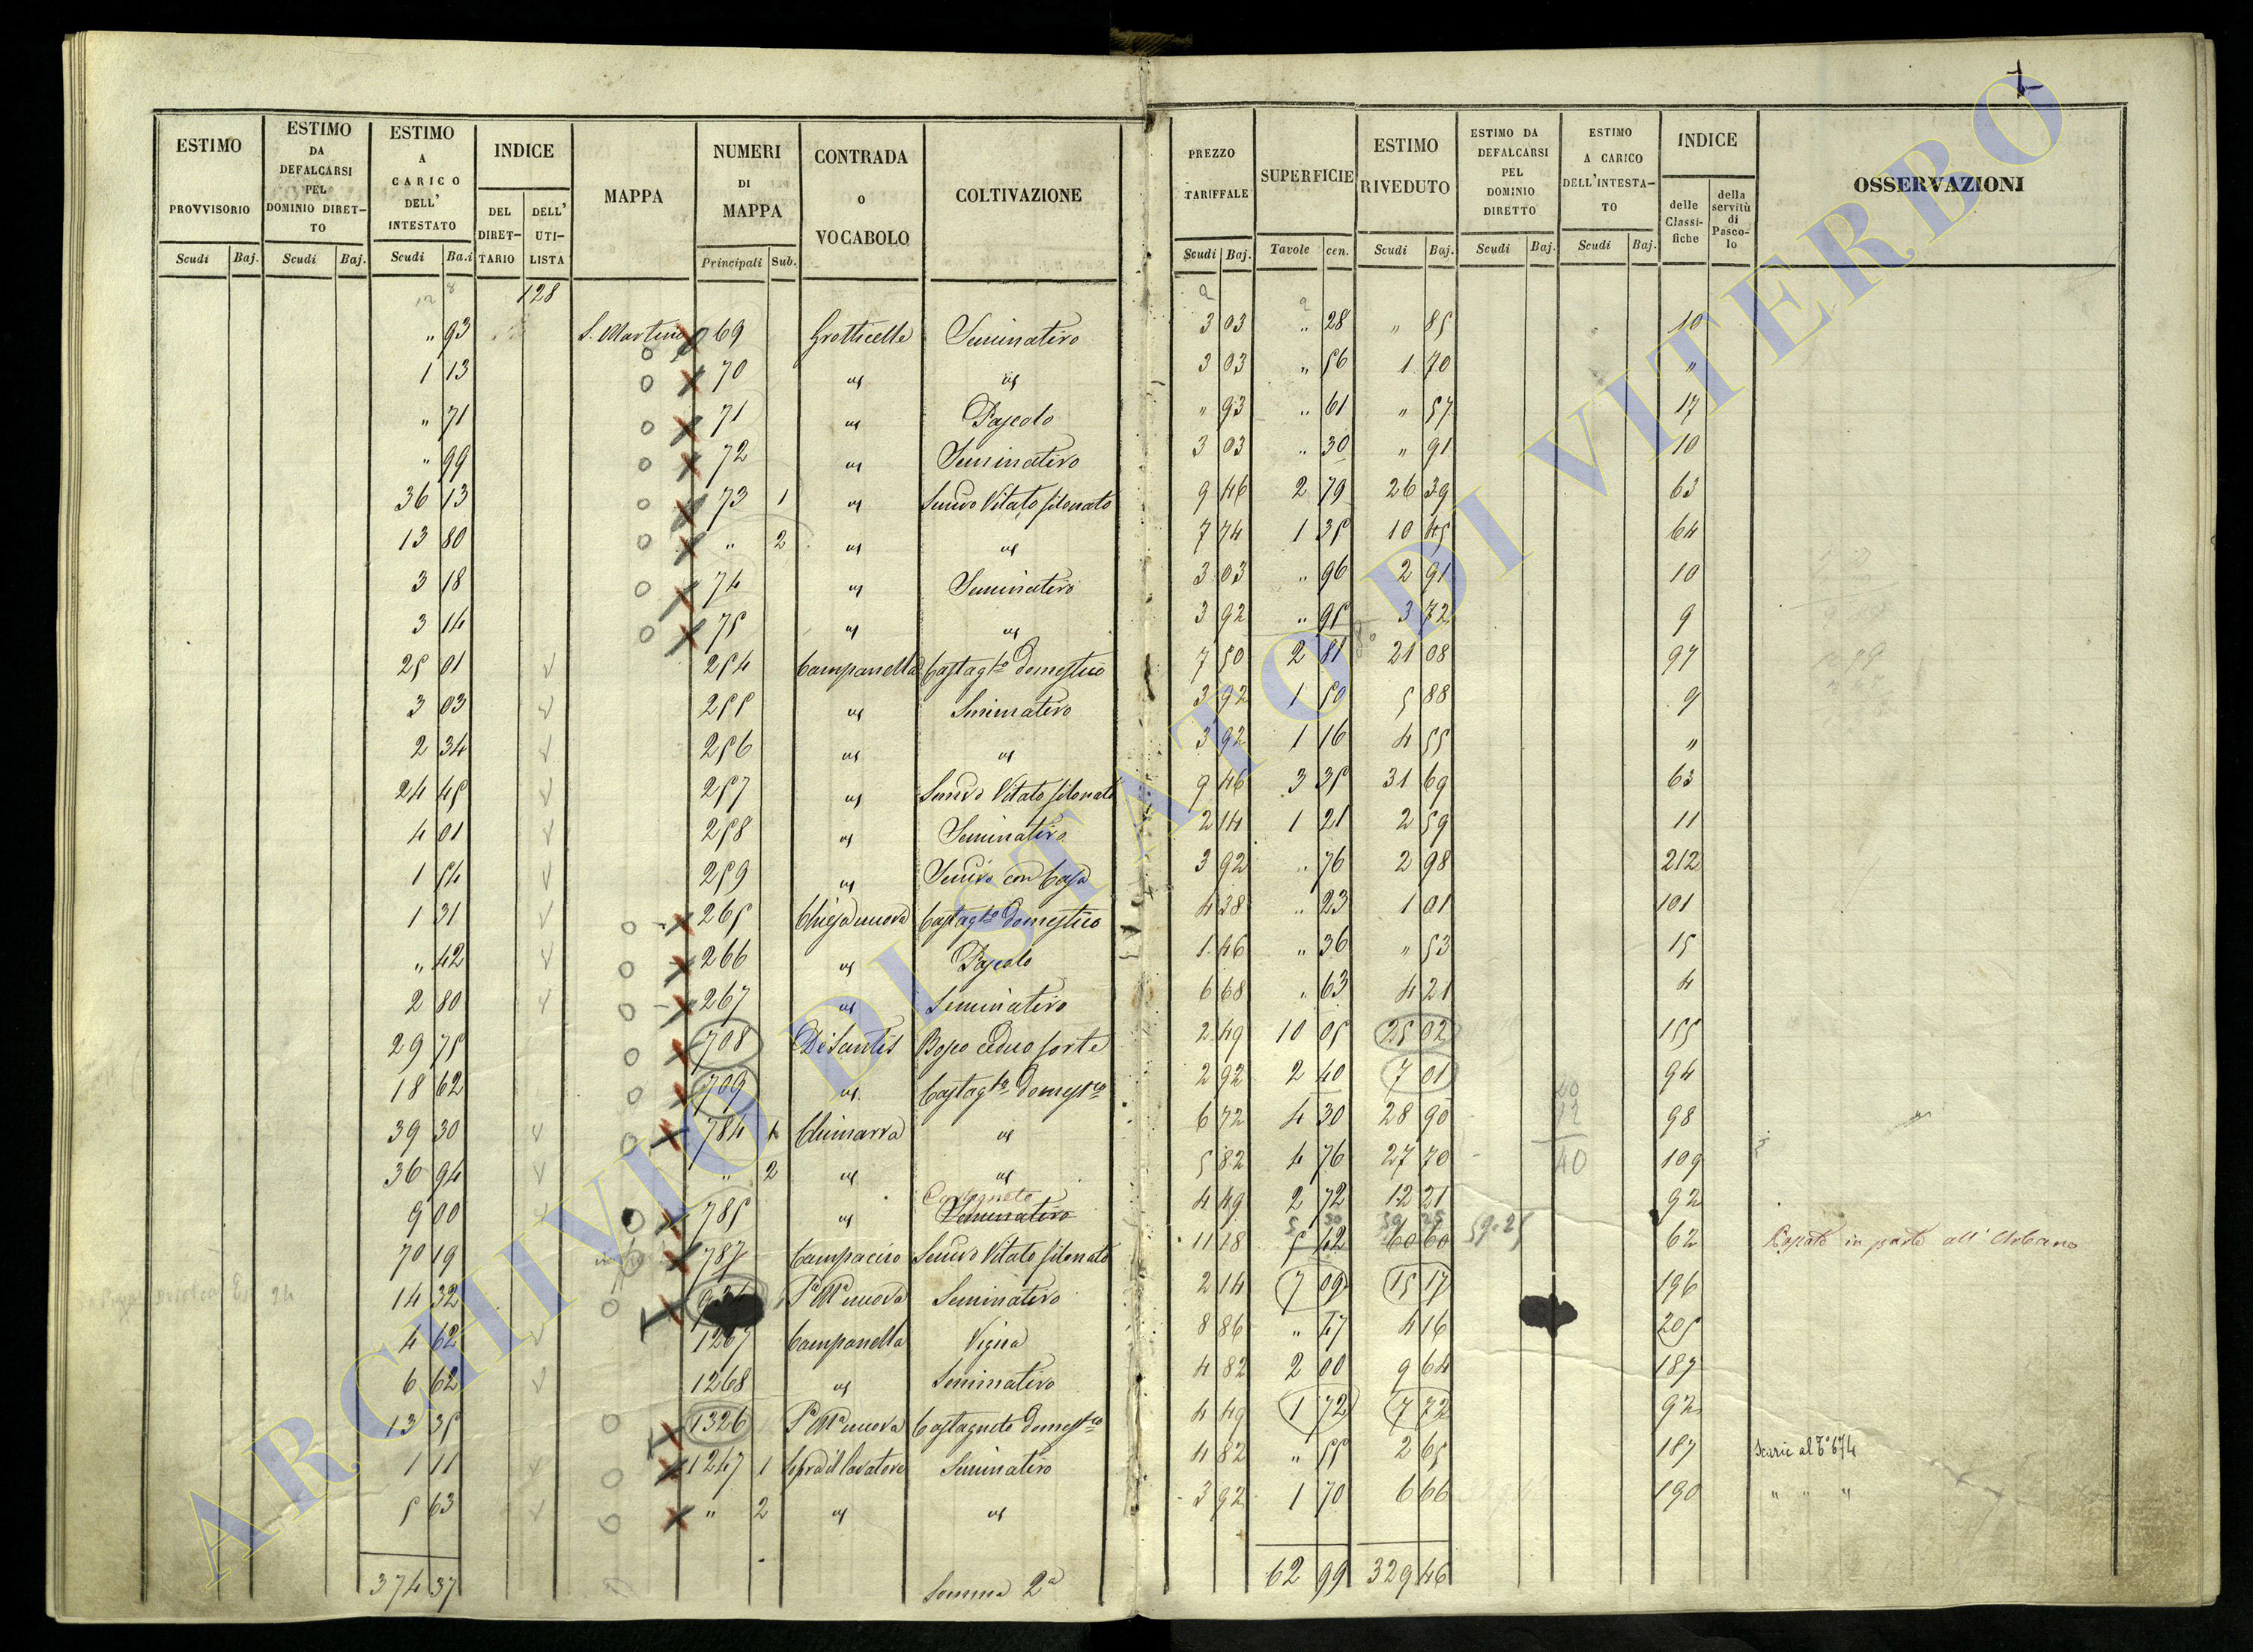 ESTIMO PROVVISORIO Scudi Baj.
ESTIMO DA DEFALCARSI PEL DOMINIO DIRET-TO Scudi Baj.
ESTIMO A CARICO DELL' INTESTATO Scudi Ba.i
INDICE DEL DIRET-TARIO DELL' UTI-LISTA
MAPPA
NUMERI DI MAPPA Principali Sub.
CONTRADA o VOCABOLO
COLTIVAZIONE
PREZZO TARIFFALE Scudi Baj.
SUPERFICIE Tavole cen.
ESTIMO RIVEDUTO Scudi Baj.
ESTIMO DA DEFALCARSI PEL DOMINIO DIRETTO Scudi Baj.
ESTIMO A CARICO DELL'INTESTA-TO Scudi Baj.
INDICE delle Classi-fiche della servitù di Pasco-lo
OSSERVAZIONI
128
" 93 S. Martino 69 Grotticelle Seminativo 3 03 " 28 " 85 10
1 13 70 " " 3 03 " 56 1 70 "
" 71 71 " Pascolo " 93 " 61 " 57 17
" 99 72 " Seminativo 3 03 " 30 " 91 10
36 13 73 1 " Semivo Vitato filonato 9 46 2 79 26 39 63
13 80 " 2 " " 7 74 1 35 10 45 64
3 18 74 " Seminativo 3 03 " 96 2 91 10
3 14 75 " " 3 92 " 95 3 72 9
25 01 254 Campanella Castagto domestico 7 50 2 81 21 08 97
3 03 255 " Seminativo 3 92 1 50 5 88 9
2 34 256 " " 3 92 1 16 4 55 "
24 45 257 " Semivo Vitato filonato 9 46 3 35 31 69 63
4 01 258 " Seminativo 2 14 1 21 2 59 11
1 54 259 " Semivo con Casa 3 92 " 76 2 98 212
1 31 265 Chiesa nuova Castagto Domestico 4 38 " 23 1 01 101
" 42 266 " Pascolo 1 46 " 36 " 53 15
2 80 267 " Seminativo 6 68 " 63 4 21 4
29 75 708 De Santis Bosco ceduo forte 2 49 10 05 25 02 155
18 62 709 " Castagto Domestco 2 92 2 40 7 01 94
39 30 784 1 Chimarra " 6 72 4 30 28 90 98
36 94 " 2 " " 5 82 4 76 27 70 109
9 00 785 " Castagneto Seminativo 4 49 2 72 12 21 92
70 19 787 Campaccio Semivo Vitato filonato 11 18 5 42 60 60 59.25 62 in parte all'Urbano
14 32 Sa Ma nuova Seminativo 2 14 7 09 15 17 196
4 62 1267 Campanella Vigna 8 86 " 47 4 16 205
6 62 1268 " Seminativo 4 82 2 00 9 64 187
13 35 1326 Sa Ma nuova Castagneto Domestco 4 49 1 72 7 72 92
1 11 1247 1 Sopra il lavatore Seminativo 4 82 " 55 2 65 187 Scaric al To 674
5 63 " 2 " " 3 92 1 70 6 66 190 " " "
374 37 Somma 2a 62 99 329 46
ARCHIVIO DI STATO DI VITERBO